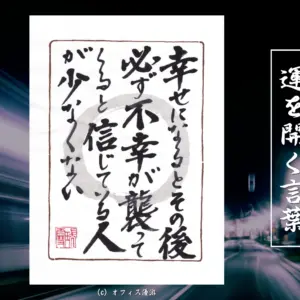 幸せになるとその後
必ず不幸が襲って
くると信じている人
が少なくない
運を開く言葉
(c) オフィス蓮沼